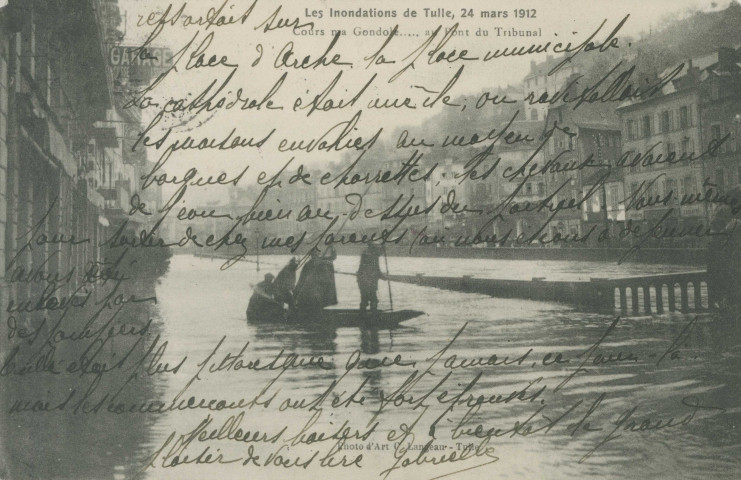 Les Inondations de Tulle, 24 mars 1912
Cours ma Gondole..... au Pont du Tribunal
GARAGE
ressortait sur
la place d'Arche la place municipale.
La cathédrale était une île, on ravitaillait
les maisons envahies au moyen de
barques et de charrettes, les chevaux avaient
de l'eau bien au-dessus du poitrail. Nous-mêmes
pour sortir de chez mes parents où nous étions à déjeuner
avons été
enlevés par
des pompiers
Tulle était plus pittoresque que jamais, ce jour-là
mais les commerçants ont été fort éprouvés.
Meilleurs baisers et à bientôt le grand
plaisir de vous lire Gabrielle
Photo d'Art C. Langeau - Tulle